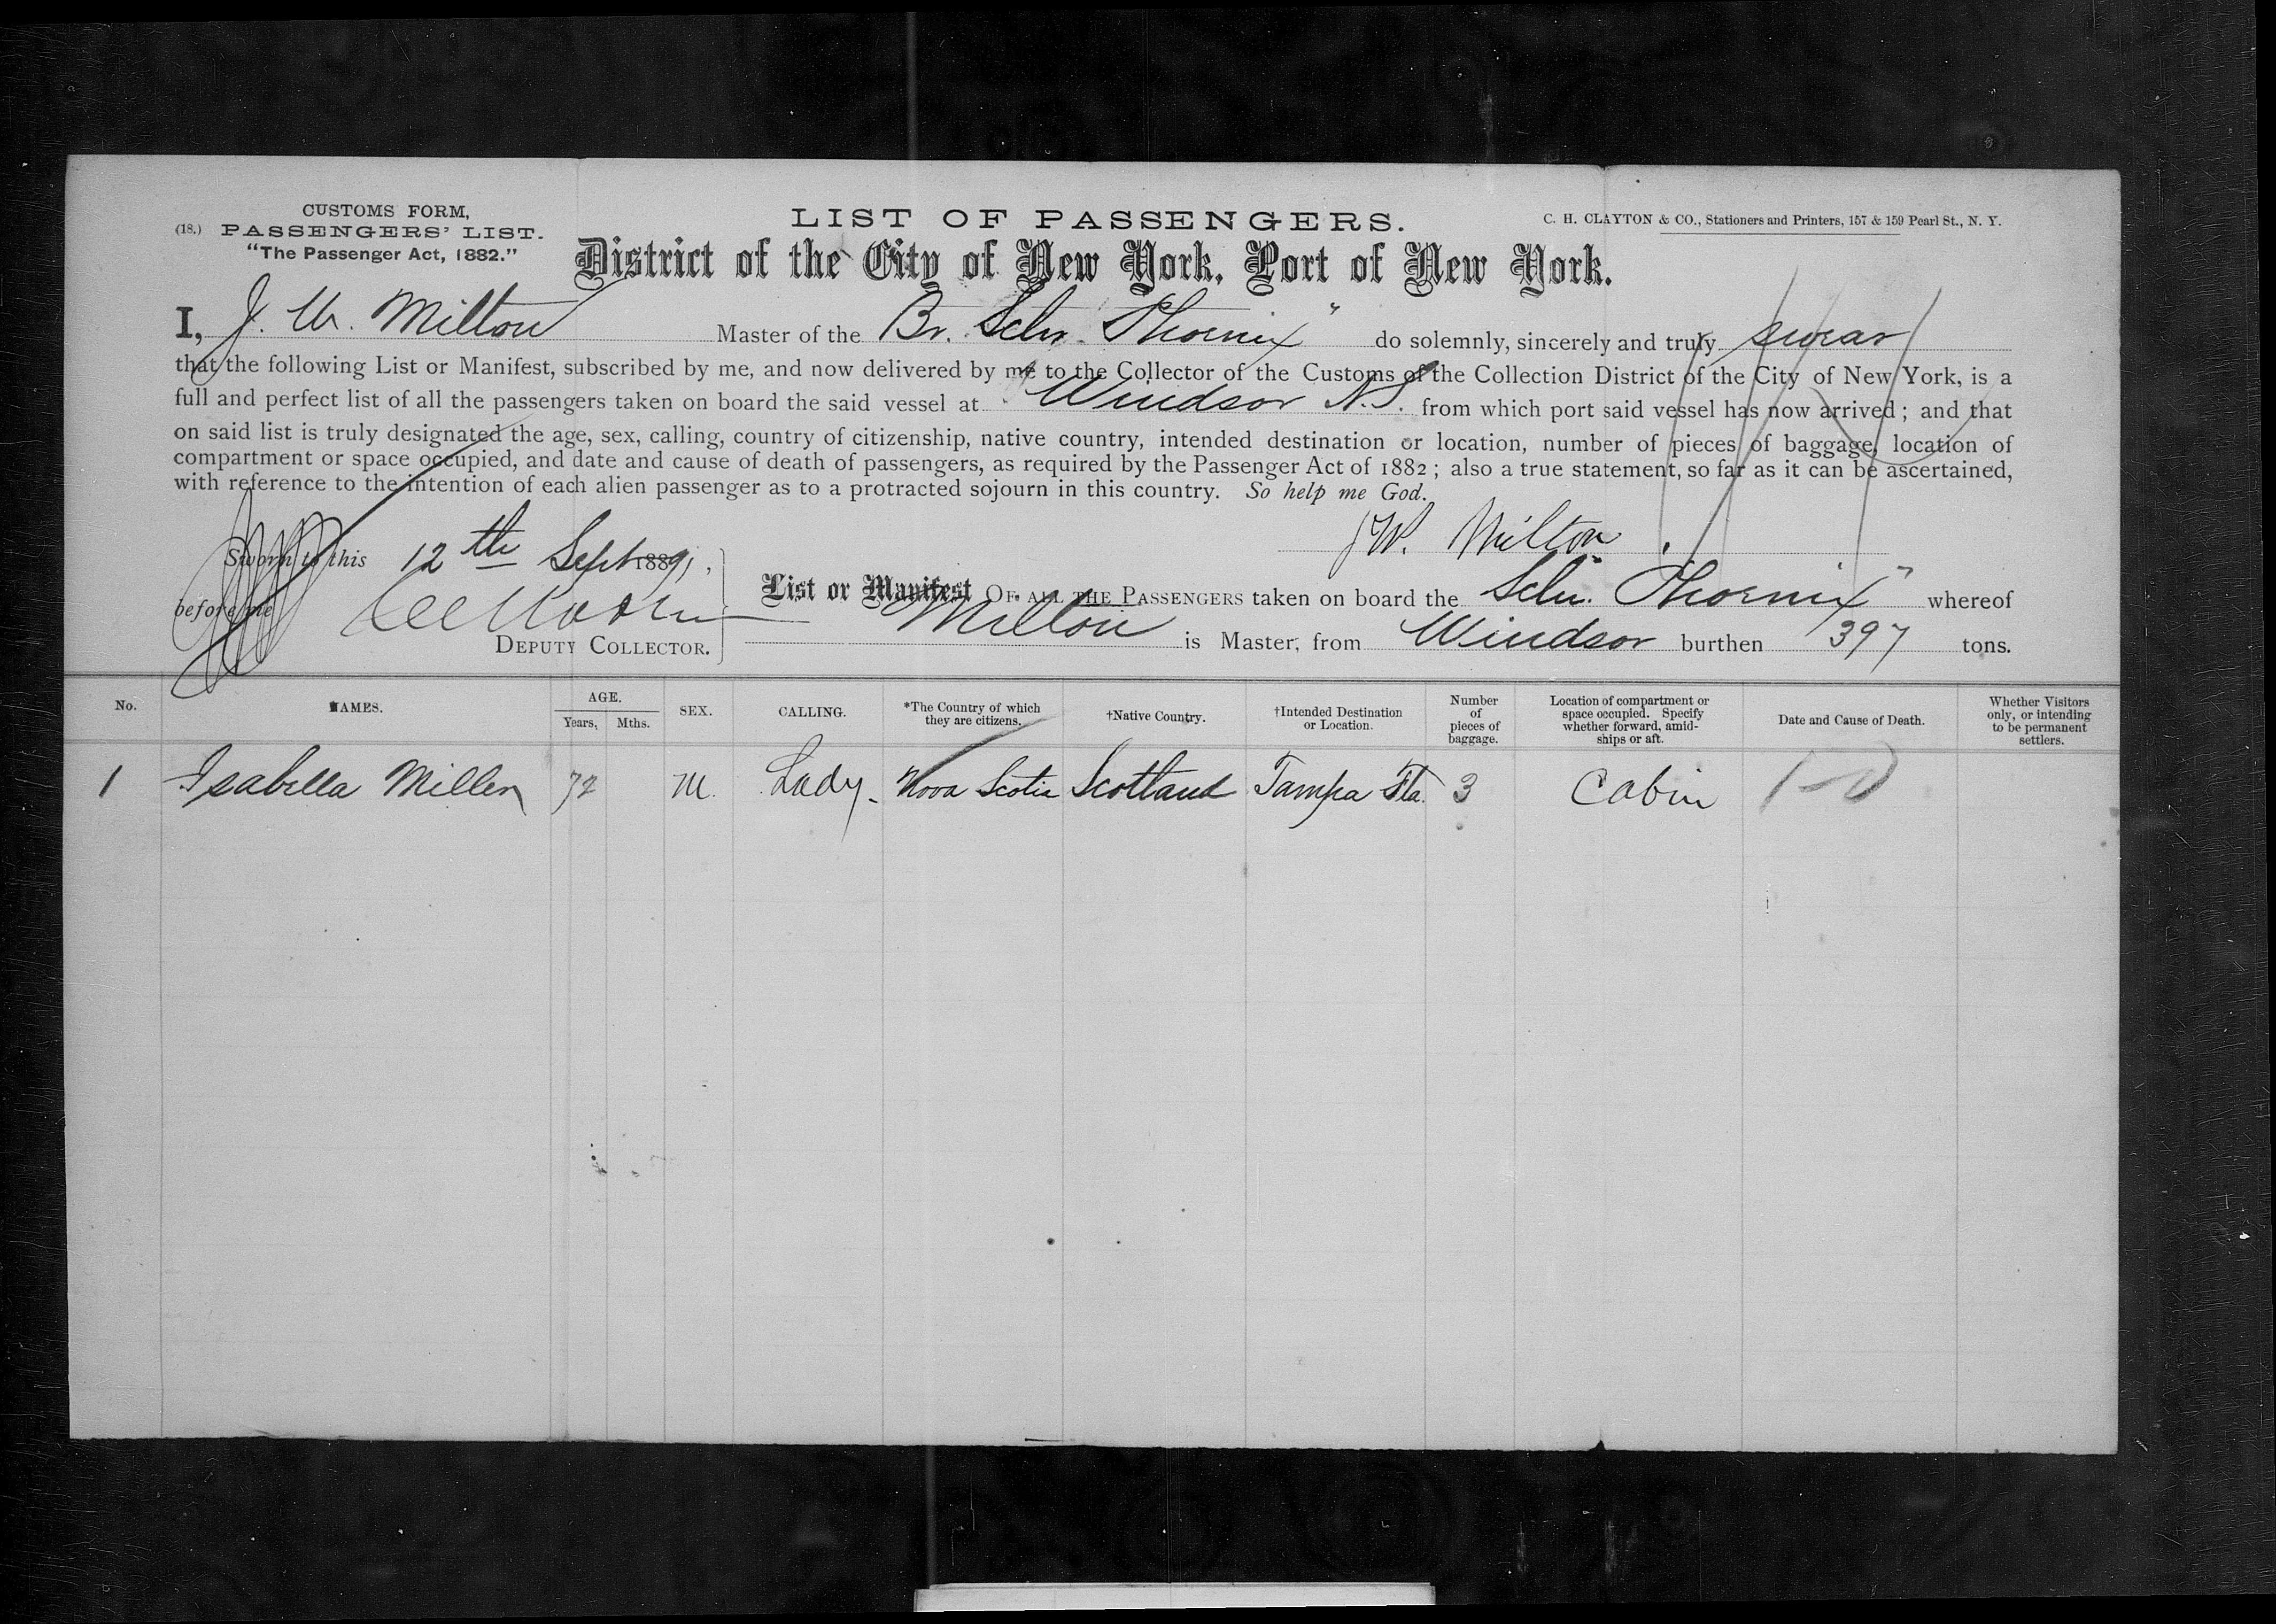 CUSTOMS FORM,
(18.) PASSENGERS' LIST.
"The Passenger Act, 1882."
LIST OF PASSENGERS.
C. H. CLAYTON & CO., Stationers and Printers, 157 & 159 Pearl St., N. Y.
District of the City of New York, Port of New York.
I, J. W. Milton Master of the Br. Schr. "Phoenix" do solemnly, sincerely and truly swear
that the following List or Manifest, subscribed by me, and now delivered by me to the Collector of the Customs of the Collection District of the City of New York, is a
full and perfect list of all the passengers taken on board the said vessel at Windsor N.S. from which port said vessel has now arrived; and that
on said list is truly designated the age, sex, calling, country of citizenship, native country, intended destination or location, number of pieces of baggage, location of
compartment or space occupied, and date and cause of death of passengers, as required by the Passenger Act of 1882; also a true statement, so far as it can be ascertained,
with reference to the intention of each alien passenger as to a protracted sojourn in this country. So help me God.
JW. Milton
Sworn to this 12th Sept 1891,
before me
DEPUTY COLLECTOR.
List or Manifest OF ALL THE PASSENGERS taken on board the Schr. "Phoenix" whereof
Milton is Master, from Windsor burthen 397 tons.
No. NAMES. AGE. Years, Mths. SEX. CALLING. *The Country of which they are citizens. †Native Country. †Intended Destination or Location. Number of pieces of baggage. Location of compartment or space occupied. Specify whether forward, amid-ships or aft. Date and Cause of Death. Whether Visitors only, or intending to be permanent settlers.
1 Isabella Miller 72 M. Lady. Nova Scotia Scotland Tampa Fla. 3 Cabin